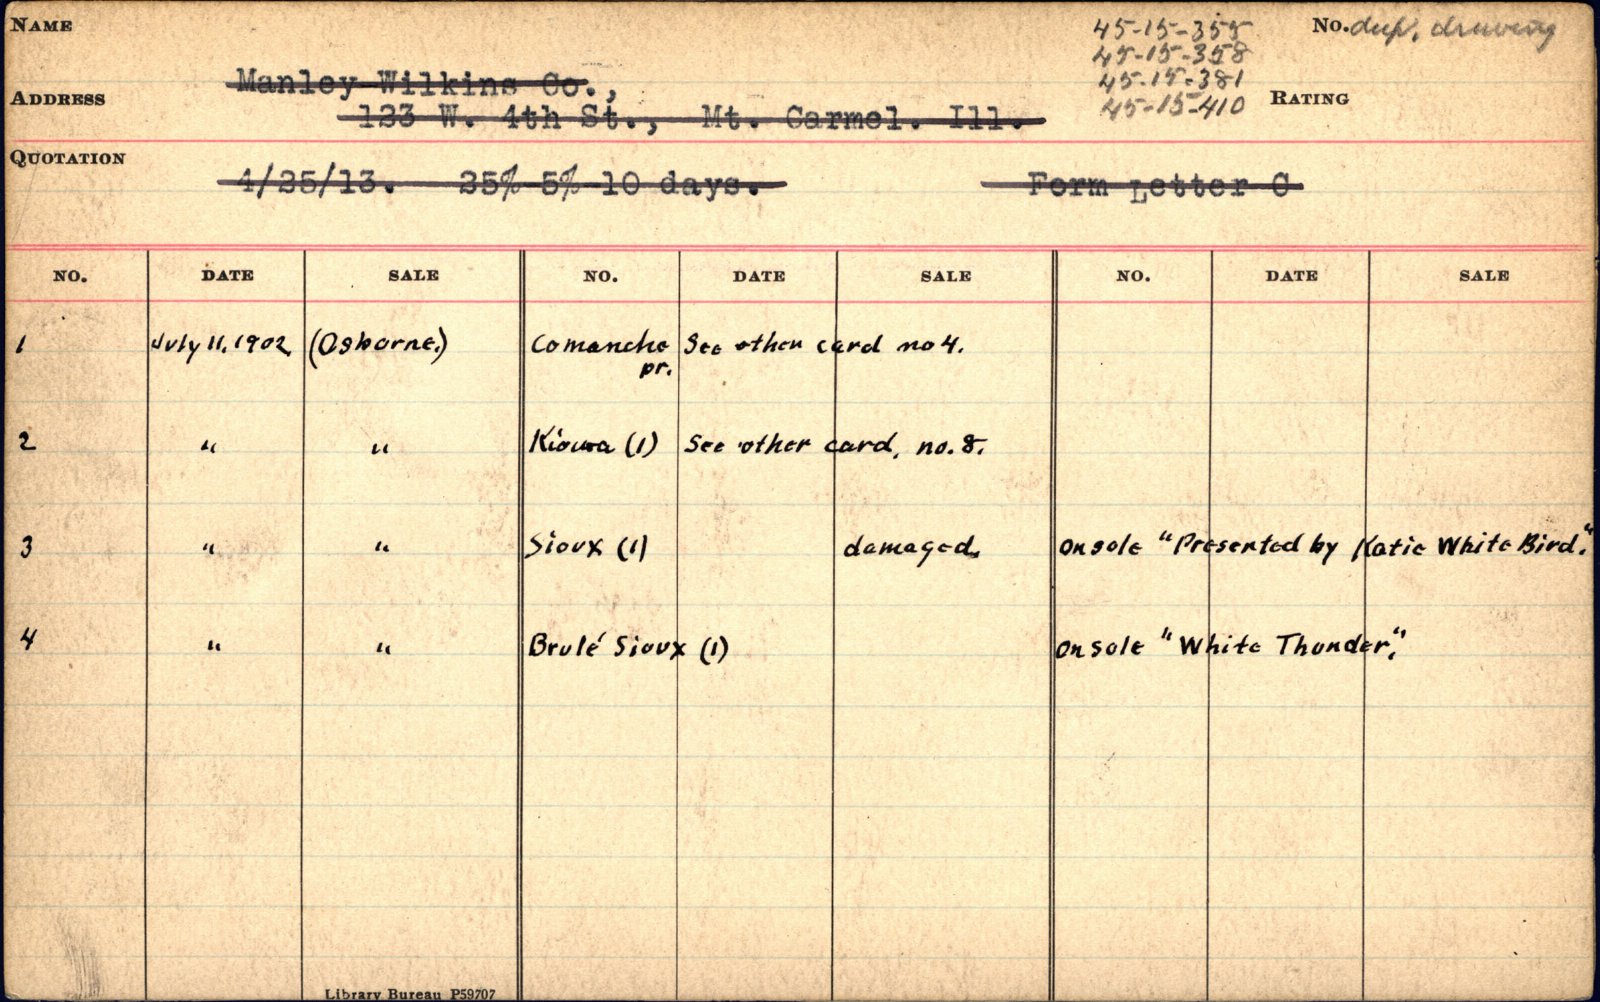 NAME
45-15-355
No. dup. drawing
45-15-358
Manley Wilkins Co.,
45-15-381
ADDRESS
45-15-410
RATING
123 W. 4th St., Mt. Carmel. Ill.
QUOTATION
4/25/13. 25% 5% 10 days. Form Letter C
NO. DATE SALE NO. DATE SALE NO. DATE SALE
1 July 11, 1902 (Osborne.) Comanche See other card no 4.
pr.
2 " " Kiowa (1) See other card, no. 8.
3 " " Sioux (1) damaged. on sole "Presented by Katie White Bird."
4 " " Brulé Sioux (1) on sole "White Thunder."
Library Bureau P59707